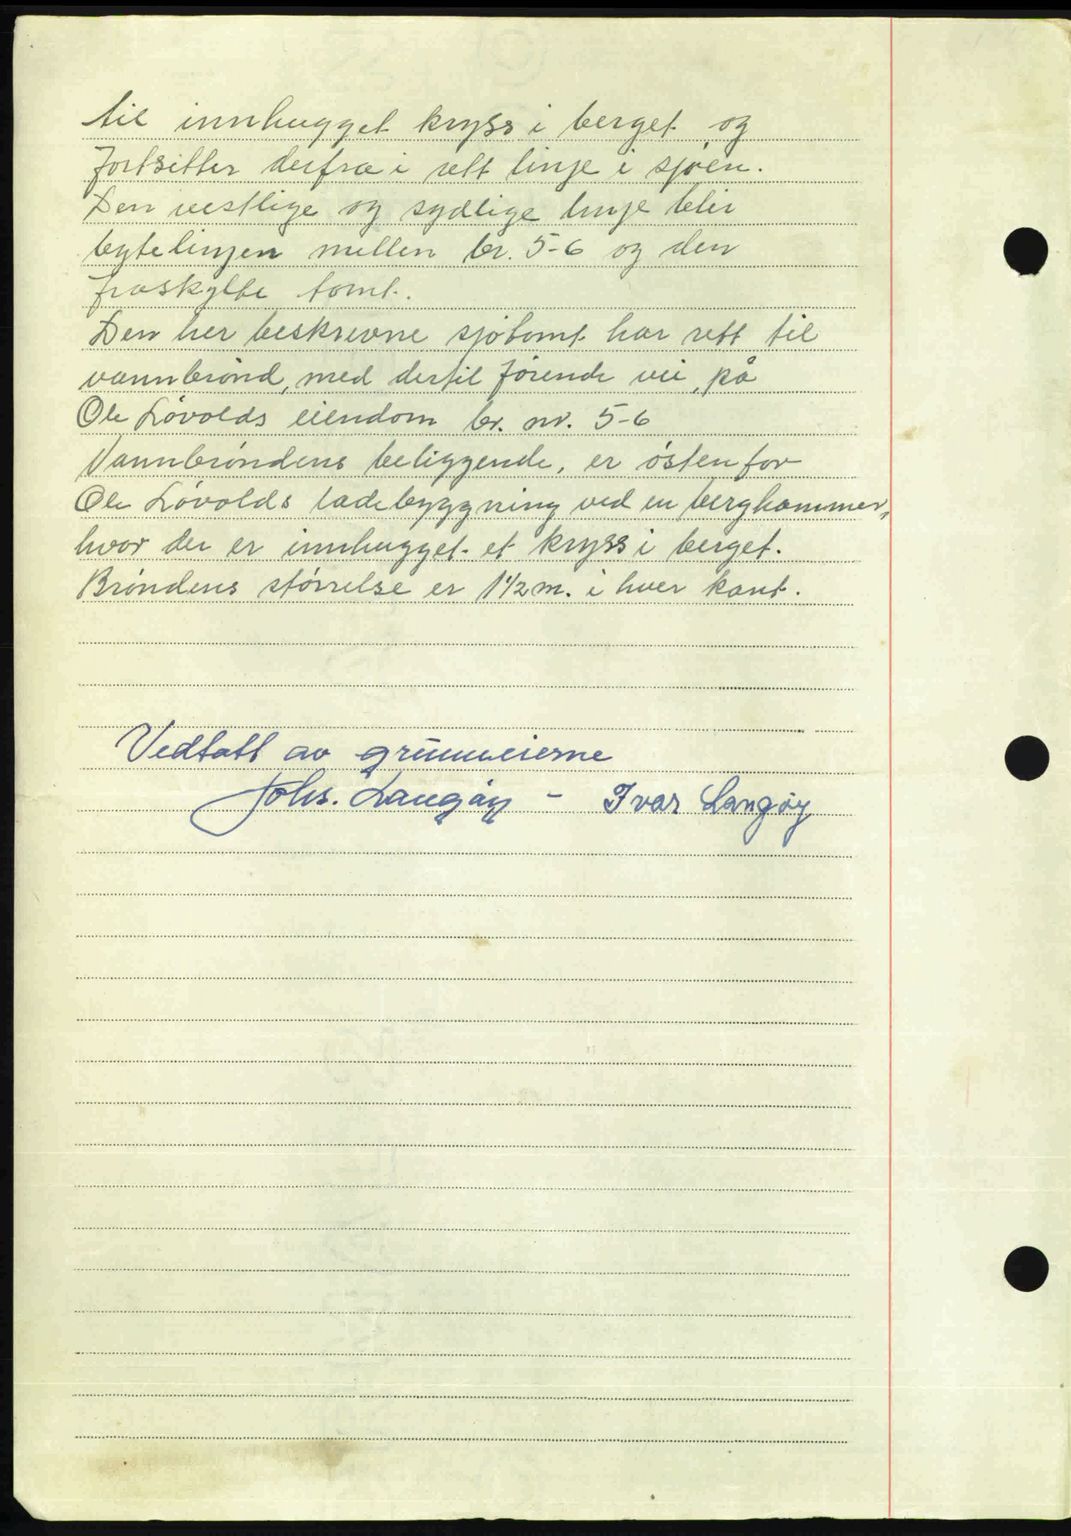 til innhugget kryss i berget og
fortsetter derfra i rett linje i sjøen.
Den vestlige og sydlige linje blir
bytelinjen mellem br. 5-6 og den
fraskylte tomt.
Den her beskrevne sjøtomt har rett til
vannbrønd, med dertil førende vei, på
Ole Løvolds eiendom br. nr. 5-6
Vannbrøndens beliggende, er østenfor
Ole Løvolds ladebyggning ved en berghammer,
hvor der er innhugget et kryss i berget.
Brøndens størrelse er 1 1/2 m. i hver kant.
Vedtatt av grunneierne
Johs. Langøy - Ivar Langøy